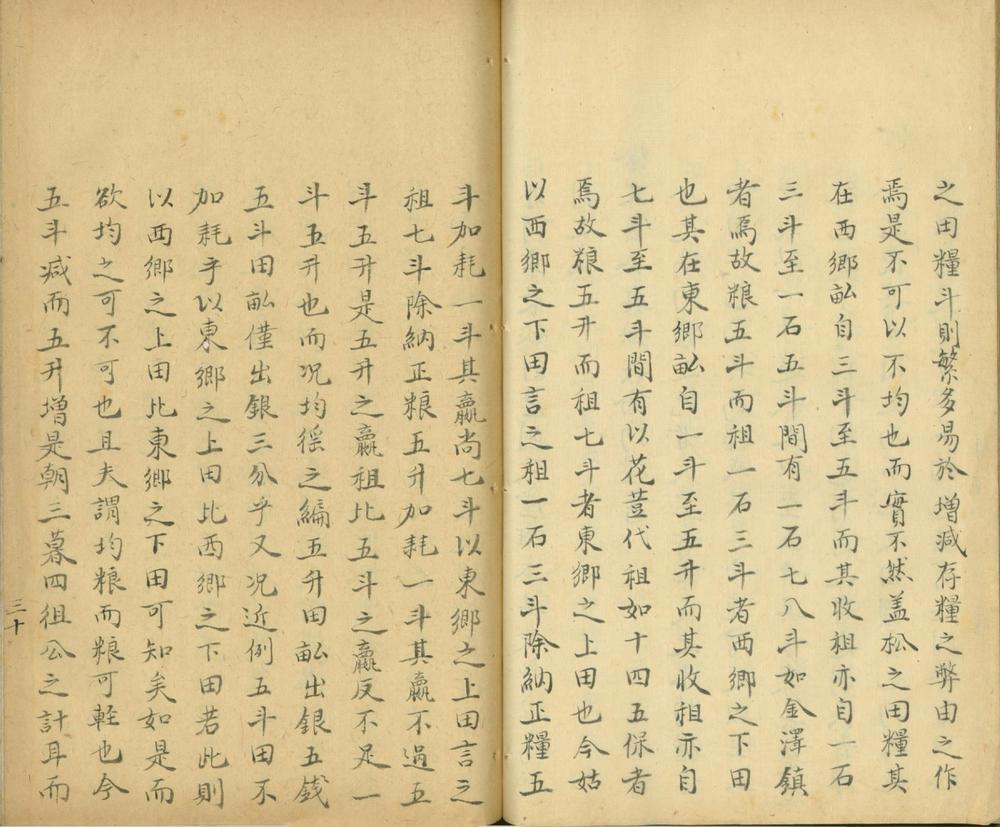 之田糧斗則繁多易於增減存糧之弊由之作
焉是不可以不均也而實不然盖松之田糧其
在西鄉畝自三斗至五斗而其收租亦自一石
三斗至一石五斗間有一石七八斗如金澤鎮
者焉故粮五斗而租一石三斗者西鄉之下田
也其在東鄉畝自一斗至五升而其收租亦自
七斗至五斗間有以花荳代租如十四五保者
焉故粮五升而租七斗者東鄉之上田也今姑
以西鄉之下田言之租一石三斗除納正糧五
斗加耗一斗其贏尚七斗以東鄉之上田言之
租七斗除納正粮五升加耗一斗其贏不過五
斗五升是五升之贏租比五斗之贏反不足一
斗五升也而况均徭之編五升田畝出銀五錢
五斗田畝僅出銀三分乎又况近例五斗田不
加耗乎以東鄉之上田比西鄉之下田若此則
以西鄉之上田比東鄉之下田可知矣如是而
欲均之可不可也且夫謂均粮而粮可輊也今
五斗减而五升增是朝三暮四徂公之計耳而
三十